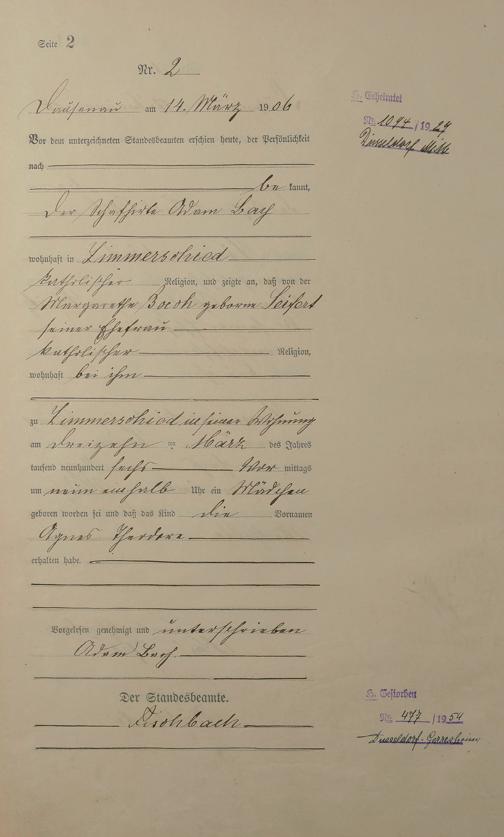 Seite 2
Nr. 2
Dausenau am 14. März 1906
Vor dem unterzeichneten Standesbeamten erschien heute, der Persönlichkeit
nach
be kannt,
Der Schafhirte Adam Bach
wohnhaft in Zimmerschied
katholischer Religion, und zeigte an, daß von der
Margarethe Bach geborne Seifert
seiner Ehefrau
katholischer Religion,
wohnhaft bei ihm
zu Zimmerschied in seiner Wohnung
am dreizehn = März des Jahres
tausend neunhundert sechs Vor mittags
um neun einhalb Uhr ein Mädchen
geboren worden sei und daß das Kind die Vornamen
Agnes Theodore
erhalten habe.
Vorgelesen genehmigt und unterschrieben
Adam Bach
Der Standesbeamte.
Fischbach
Geheiratet
Nr. 1094 /1929
Düsseldorf Mitte
Gestorben
Nr. 477 /1954
Düsseldorf-Gerresheim